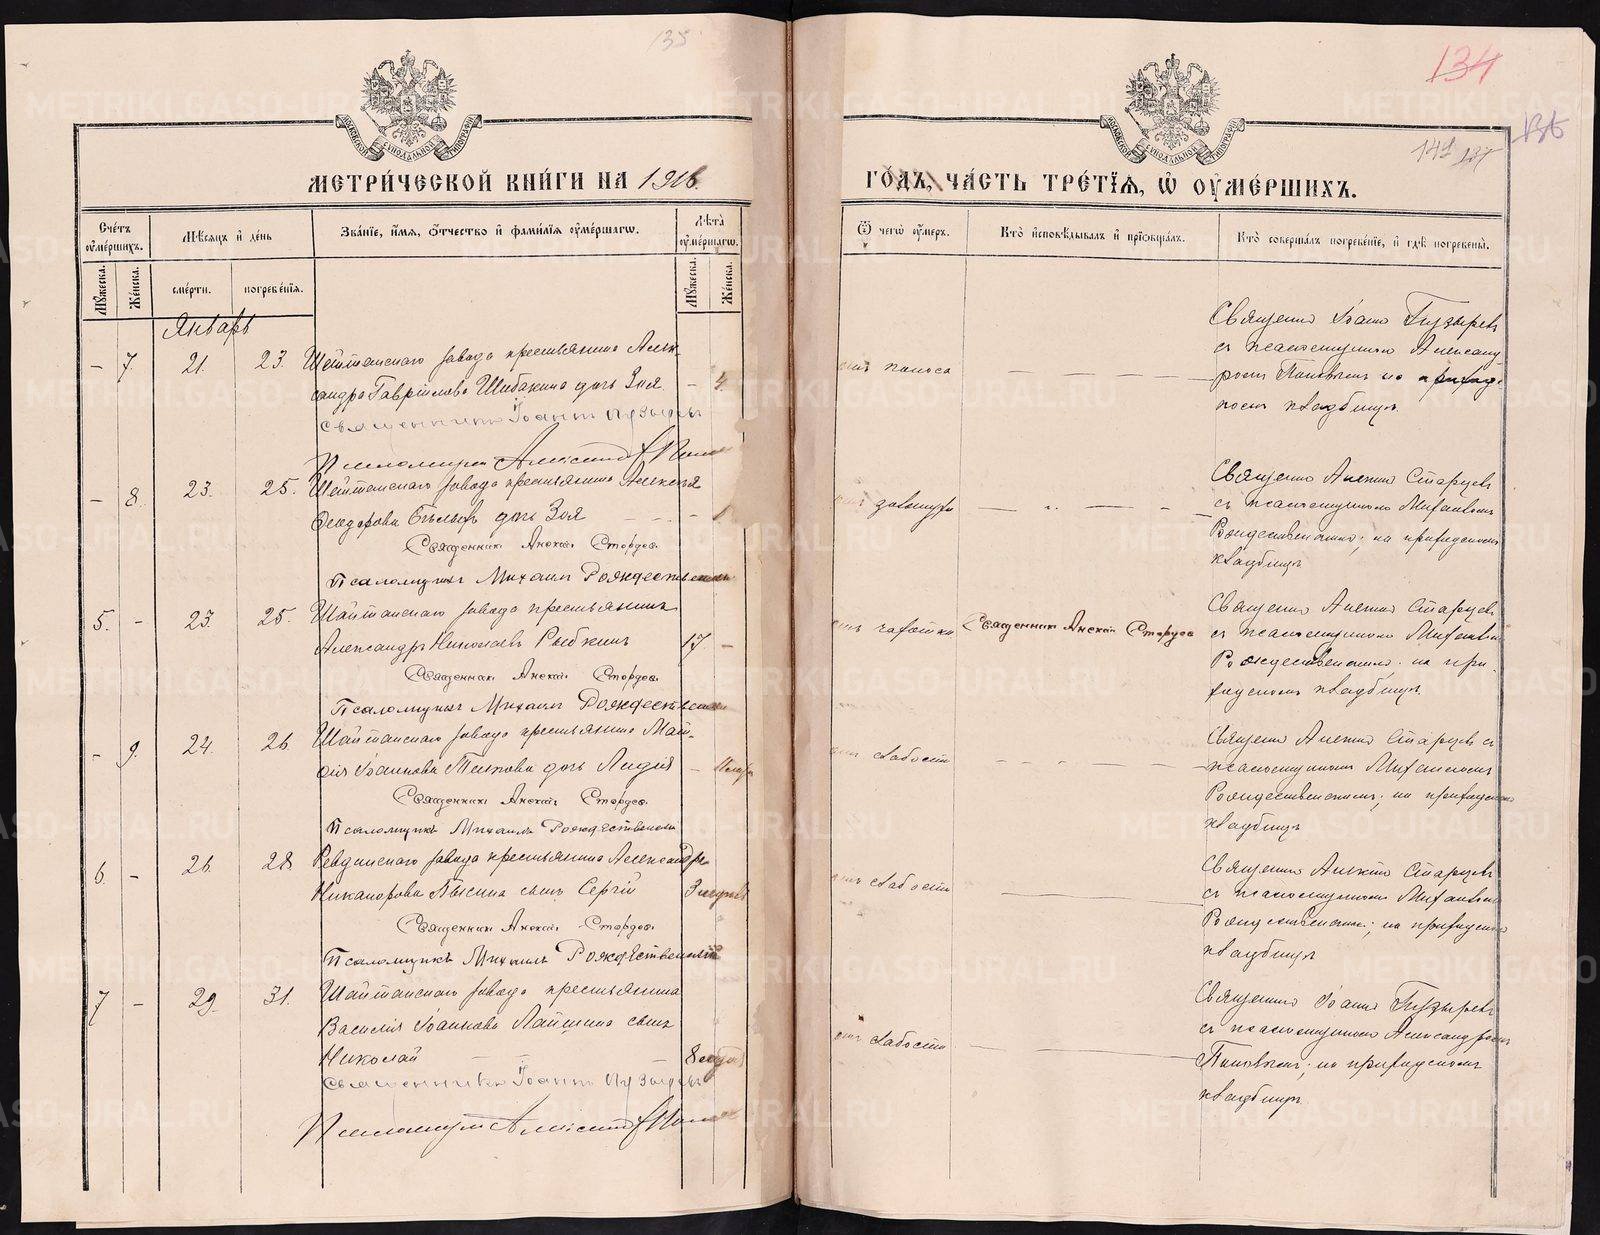 135
134
141
137
МЕТРИ́ЧЕСКОЙ КНИ́ГИ НА 1916
ГО́ДЪ, ЧА́СТЬ ТРЕ́ТЇѦ, Ѡ҆ ОУ҆МЕ́РШИХЪ.
Сче́тъ оу҆ме́ршихъ.
Мѣ́сѧцъ и҆ де́нь
Зва́нїе, и҆́мѧ, ѻ҆́тчество и҆ фами́лїѧ оу҆ме́ршагѡ.
Лѣ́та оу҆ме́ршагѡ.
Ѿ чегѡ̀ оу҆́меръ.
Кто̀ и҆сповѣ́дывалъ и҆ прїѡбща́лъ.
Кто̀ соверша́лъ погребе́нїе, и҆ гдѣ̀ погребены̀.
Мꙋ́жеска.
Же́нска.
сме́рти.
погребе́нїѧ.
Мꙋ́жеска.
Же́нска.
Январь
– 7. 21. 23. Шайтанскаго завода крестьянина Алек-
сандра Гавріилова Шибакина дочь Зоя – 4.
Священникъ Іоаннъ Пузырев
Псаломщик Александр Попов
отъ поноса
Священно Іоанно Пузыревъ
съ псаломщикомъ Александ
ромъ Поповымъ на приход
скомъ кладбищѣ
– 8. 23. 25. Шайтанскаго завода крестьянина Алексѣя
Ѳеодорова дочь Зоя –
Священник Алексій Старцев
Псаломщикъ Михаилъ Рождественскій
отъ
Священно Алексій Старцевъ
съ псаломщикомъ Михаиломъ
Рождественскимъ; на приходскомъ
кладбищѣ
5. – 23. 25. Шайтанскаго завода крестьянинъ
Александръ Николаевъ Рыбкинъ 17 –
Священник Алексій Старцев
Псаломщикъ Михаилъ Рождественскій
отъ чахотки
Священник Алексій Старцев
Священно Алексій Старцевъ
съ псаломщикомъ Михаиломъ
Рождественскимъ на при-
ходскомъ кладбищѣ
– 9. 24. 26. Шайтанскаго завода крестьянина Мат-
ѳія Іоаннова дочь Лидія –
Священник Алексій Старцев
Псаломщикъ Михаилъ Рождественскій
отъ слабости
Священно Алексій Старцевъ съ
псаломщикомъ Михаиломъ
Рождественскимъ; на приходском
кладбищѣ
6. – 26. 28. Ревдинскаго завода крестьянина Александра
Никанорова сынъ Сергій
Священник Алексій Старцев
Псаломщикъ Михаилъ Рождественскій
отъ слабости
Священно Алексій Старцевъ
съ псаломщикомъ Михаиломъ
Рождественскимъ; на приходском
кладбищѣ
7 – 29. 31. Шайтанскаго завода крестьянина
Василія Іоаннова сынъ
Николай – 8
Священникъ Іоаннъ Пузырев
Псаломщик Александр Попов
отъ слабости
Священно Іоанно Пузыревъ
съ псаломщикомъ Александромъ
Поповымъ; на приходскомъ
кладбищѣ
METRIKI.GASO-URAL.RU